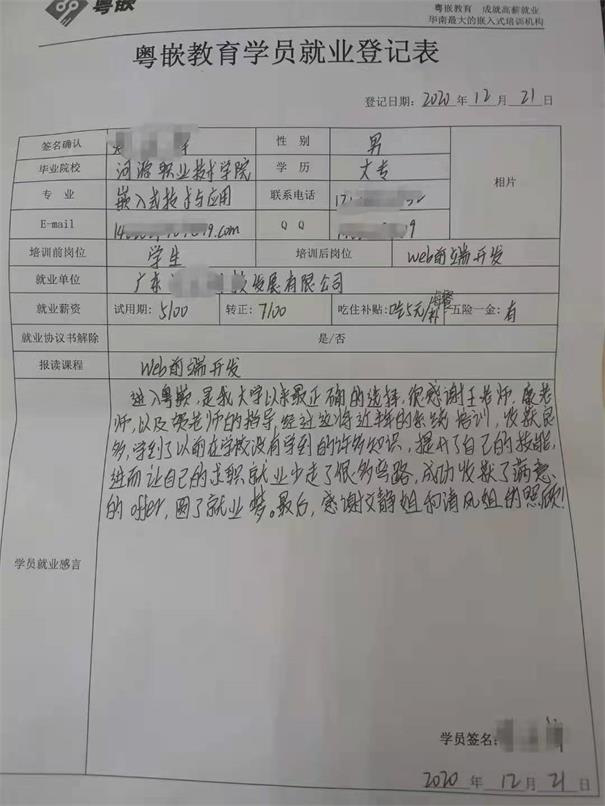 粤嵌
粤嵌教育 成就高薪就业
华南最大的嵌入式培训机构
粤嵌教育学员就业登记表
登记日期：2020年12月21日
签名确认 性 别 男
毕业院校 河源职业技术学院 学 历 大专 相片
专 业 嵌入式技术与应用 联系电话
E-mail .com Q Q
培训前岗位 学生 培训后岗位 web前端开发
就业单位 广东 发展有限公司
就业薪资 试用期：5100 转正：7100 吃住补贴：吃5元/ 五险一金：有
就业协议书解除 是/否
报读课程 web前端开发
进入粤嵌，是我大学以来最正确的选择，很感谢王老师，老
师，以及老师的指导，经过将近半年的系统培训，收获良
多，学到了以前在学校没有学到的许多知识，提升了自己的技能，
进而让自己的求职就业少走了很多弯路，成功收获了满意
的offer，圆了就业梦。最后，感谢文静姐和清风姐的照顾！
学员就业感言
学员签名：
2020年12月21日